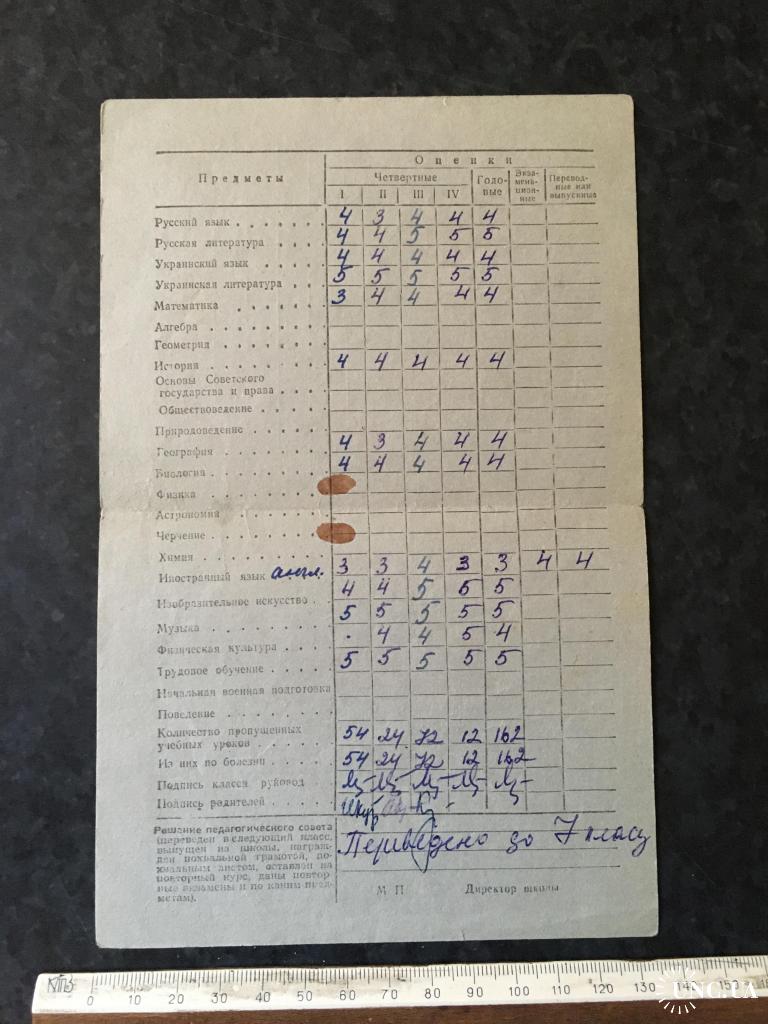 О ц е н к и
П р е д м е т ы
Четвертные
Годо-
вые
Экза-
мена-
цион-
ные
Перевод-
ные или
выпускные
I II III IV
Русский язык . . . . . . . 4 3 4 4 4
Русская литература . . . . 4 4 5 5 5
Украинский язык . . . . . 4 4 4 4 4
Украинская литература . . . 5 5 5 5 5
Математика . . . . . . . 3 4 4 4 4
Алгебра . . . . . . . .
Геометрия . . . . . . . .
История . . . . . . . . 4 4 4 4 4
Основы Советского
государства и права . . . .
Обществоведение . . . . .
Природоведение . . . . .
География . . . . . . . 4 3 4 4 4
Биология . . . . . . . . 4 4 4 4 4
Физика . . . . . . . .
Астрономия . . . . . . .
Черчение . . . . . . . .
Химия . . . . . . . . .
Иностранный язык англ. 3 3 4 3 3 4 4
Изобразительное искусство . 4 4 5 5 5
Музыка . . . . . . . . 5 5 5 5 5
Физическая культура . . . . · 4 4 5 4
Трудовое обучение . . . . . 5 5 5 5 5
Начальная военная подготовка
Поведение . . . . . . . .
Количество пропущенных
учебных уроков . . . . . 54 24 72 12 162
Из них по болезни . . . . . 54 24 72 12 162
Подпись класса руковод
Подпись родителей . . . . .
Решание педагогического совета
(переведен в следующий класс,
выпущен из школы, награж-
ден похвальной грамотой, по-
хвальным листом, оставлен на
повторный курс, даны повтор-
ные экзамены и по каким пред-
метам).
Переведено до 7 класу
М П Директор школы
0 10 20 30 40 50 60 70 80 90 100 110 120 130 140 150
UNC.UA